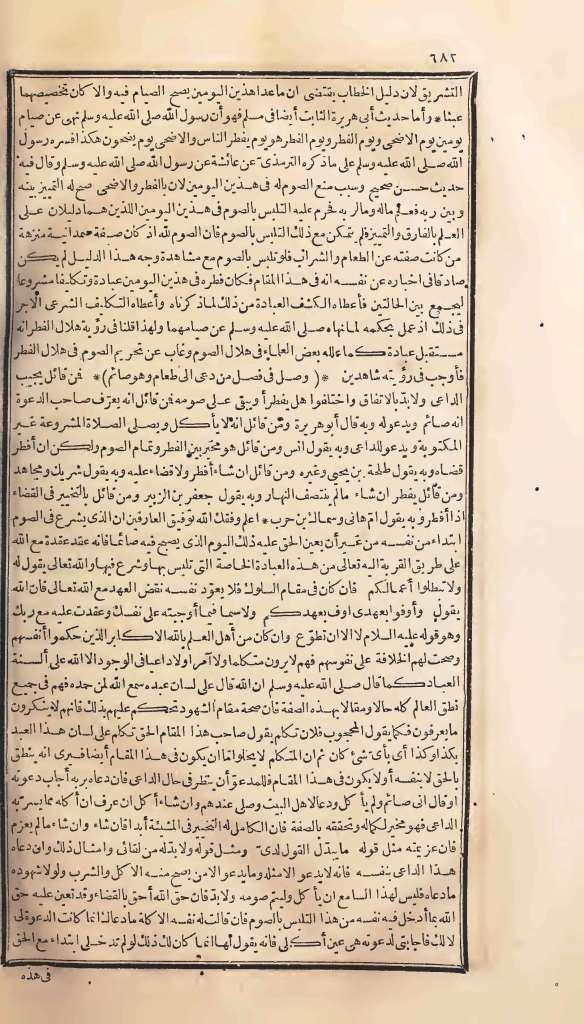 ٦٨٢
التشريق لان دليل الخطاب يقتضى ان ماعدا هذين اليومين يصح الصيام فيه والا كان تخصيصهما
عبثا * وأما حديث أبى هريرة الثابت أيضا فى مسلم فهو أن رسول الله صلى الله عليه وسلم نهى عن صيام
يومين يوم الاضحى ويوم الفطر ويوم الفطر هو يوم يفطر الناس والاضحى يوم يضحون هكذا فسره رسول
الله صلى الله عليه وسلم على ماذكره الترمذى عن عائشة عن رسول الله صلى الله عليه وسلم وقال فيه
حديث حسن صحيح وسبب منع الصوم له فى هذين اليومين لان بالفطر والاضحى صح له التمييز بينه
وبين ربه فعلم ماله ومالربه فحرم عليه التلبس بالصوم فى هذين اليومين اللذين هما دليلان على
العلم بالفارق والتمييز فلم يتمكن مع ذلك التلبس بالصوم فان الصوم لله اذ كان صفة صمدانية منزهة
من كانت صفته عن الطعام والشراب فلو تلبس بالصوم مع مشاهدة وجه هذا الدليل لم يكن
صادقا فى اخباره عن نفسه انه فى هذا المقام فكان فطره فى هذين اليومين عبادة وتكليفا مشروعا
ليجمع بين الحالتين فأعطاه الكشف العبادة من ذلك لماذكرناه وأعطاه التكليف الشرعى الاجر
فى ذلك اذ عمل بحكمه لمانهاه صلى الله عليه وسلم عن صيامهما ولهذا قلنا فى رؤية هلال الفطر انه
مستقبل عبادة كما علله بعض العلماء فى هلال الصوم وغاب عن تحريم الصوم فى هلال الفطر
فأوجب فى رؤيته شاهدين * (وصل فى فصل من دعى الى طعام وهو صائم) * فمن قائل يجيب
الداعى ولابد بالاتفاق واختلفوا هل يفطر أو يبقى على صومه فمن قائل انه يعرّف صاحب الدعوة
انه صائم ويدعوله وبه قال أبو هريرة ومن قائل انه لا يأكل ويصلى الصلاة المشروعة غير
المكتوبة ويدعو للداعى وبه يقول انس ومن قائل هو مخير بين الفطر وتمام الصوم ولكن ان أفطر
قضاه وبه يقول طلحة بن يحيى وغيره ومن قائل ان شاء أفطر ولا قضاء عليه وبه يقول شريك ومجاهد
ومن قائل يفطر ان شاء مالم ينتصف النهار وبه يقول جعفر بن الزبير ومن قائل بالتخيير فى القضاء
اذا أفطر وبه يقول ام هانى وسماك بن حرب * اعلم وفقك الله توفيق العارفين ان الذى يشرع فى الصوم
ابتداء من نفسه من غير أن يعين الحق عليه ذلك اليوم الذى يصبح فيه صائما فانه عقد عقدة مع الله
على طريق القربة اليه تعالى من هذه العبادة الخاصة التى تلبس بها وشرع فيها والله تعالى يقول له
ولا تبطلوا أعمالكم فان كان فى مقام السلوك فلا يعود نفسه نقض العهد مع الله تعالى فان الله
يقول وأوفوا بعهدى أوف بعهدكم ولاسيما فيما أوجبته على نفسك وعقدت عليه مع ربك
وهو قوله عليه السلام لا الا ان تطوّع وان كان من أهل العلم بالله الاكابر الذين حكموا أنفسهم
وصحت لهم الخلافة على نفوسهم فهم لا يرون متكلما ولا آمرا ولا داعيا فى الوجود الا الله على ألسنة
العباد كما قال صلى الله عليه وسلم ان الله قال على لسان عبده سمع الله لمن حمده فهم فى جميع
نطق العالم كله حالا ومقالا بهذه الصفة فان صحة مقام الشهود تحكم عليهم بذلك فانهم لا ينكرون
ما يعرفون فكما يقول المحجوب فلان تكلم يقول صاحب هذا المقام الحق تكلم على لسان هذا العبد
بكذا وكذا أى بأى شئ كان ثم ان المتكلم لا يخلو اما ان يكون فى هذا المقام أيضا فيرى انه ينطق
بالحق لا بنفسه أو لا يكون فى هذا المقام فللمدعوّ أن ينظر فى حال الداعى فان دعاه بربه أجاب دعوته
او قال انى صائم ولم يأكل ودعا لاهل البيت وصلى عندهم وان شاء أكل ان عرف ان أكله مما يسرّبه
الداعى فهو مخير لكماله وتحققه بالصفة فان الكامل له التخيير فى المشيئة أبدا فان شاء وان شاء مالم يعزم
فان عزيمته مثل قوله ما يبدّل القول لدىّ ومثل قوله ولابدّ له من لقائى وامثال ذلك وان دعاه
هذا الداعى بنفسه فانه لا يدعو الا مثله وما يدعو الا من يصح منه الاكل والشرب ولولا شهوده
ما دعاه فليس لهذا السامع ان يأكل وليتم صومه ولابد فان حق الله أحق بالقضاء وقد تعين عليه حق
الله بما أدخل فيه نفسه من هذا التلبس بالصوم فان قالت له نفسه الاكلة مادعاك انما كانت الدعوة لى
لالك فاجابتى لدعوته هى عين أكلى فانه يقول لها انما كان لك ذلك لو لم تدخلى ابتداء مع الحق
فى هذه